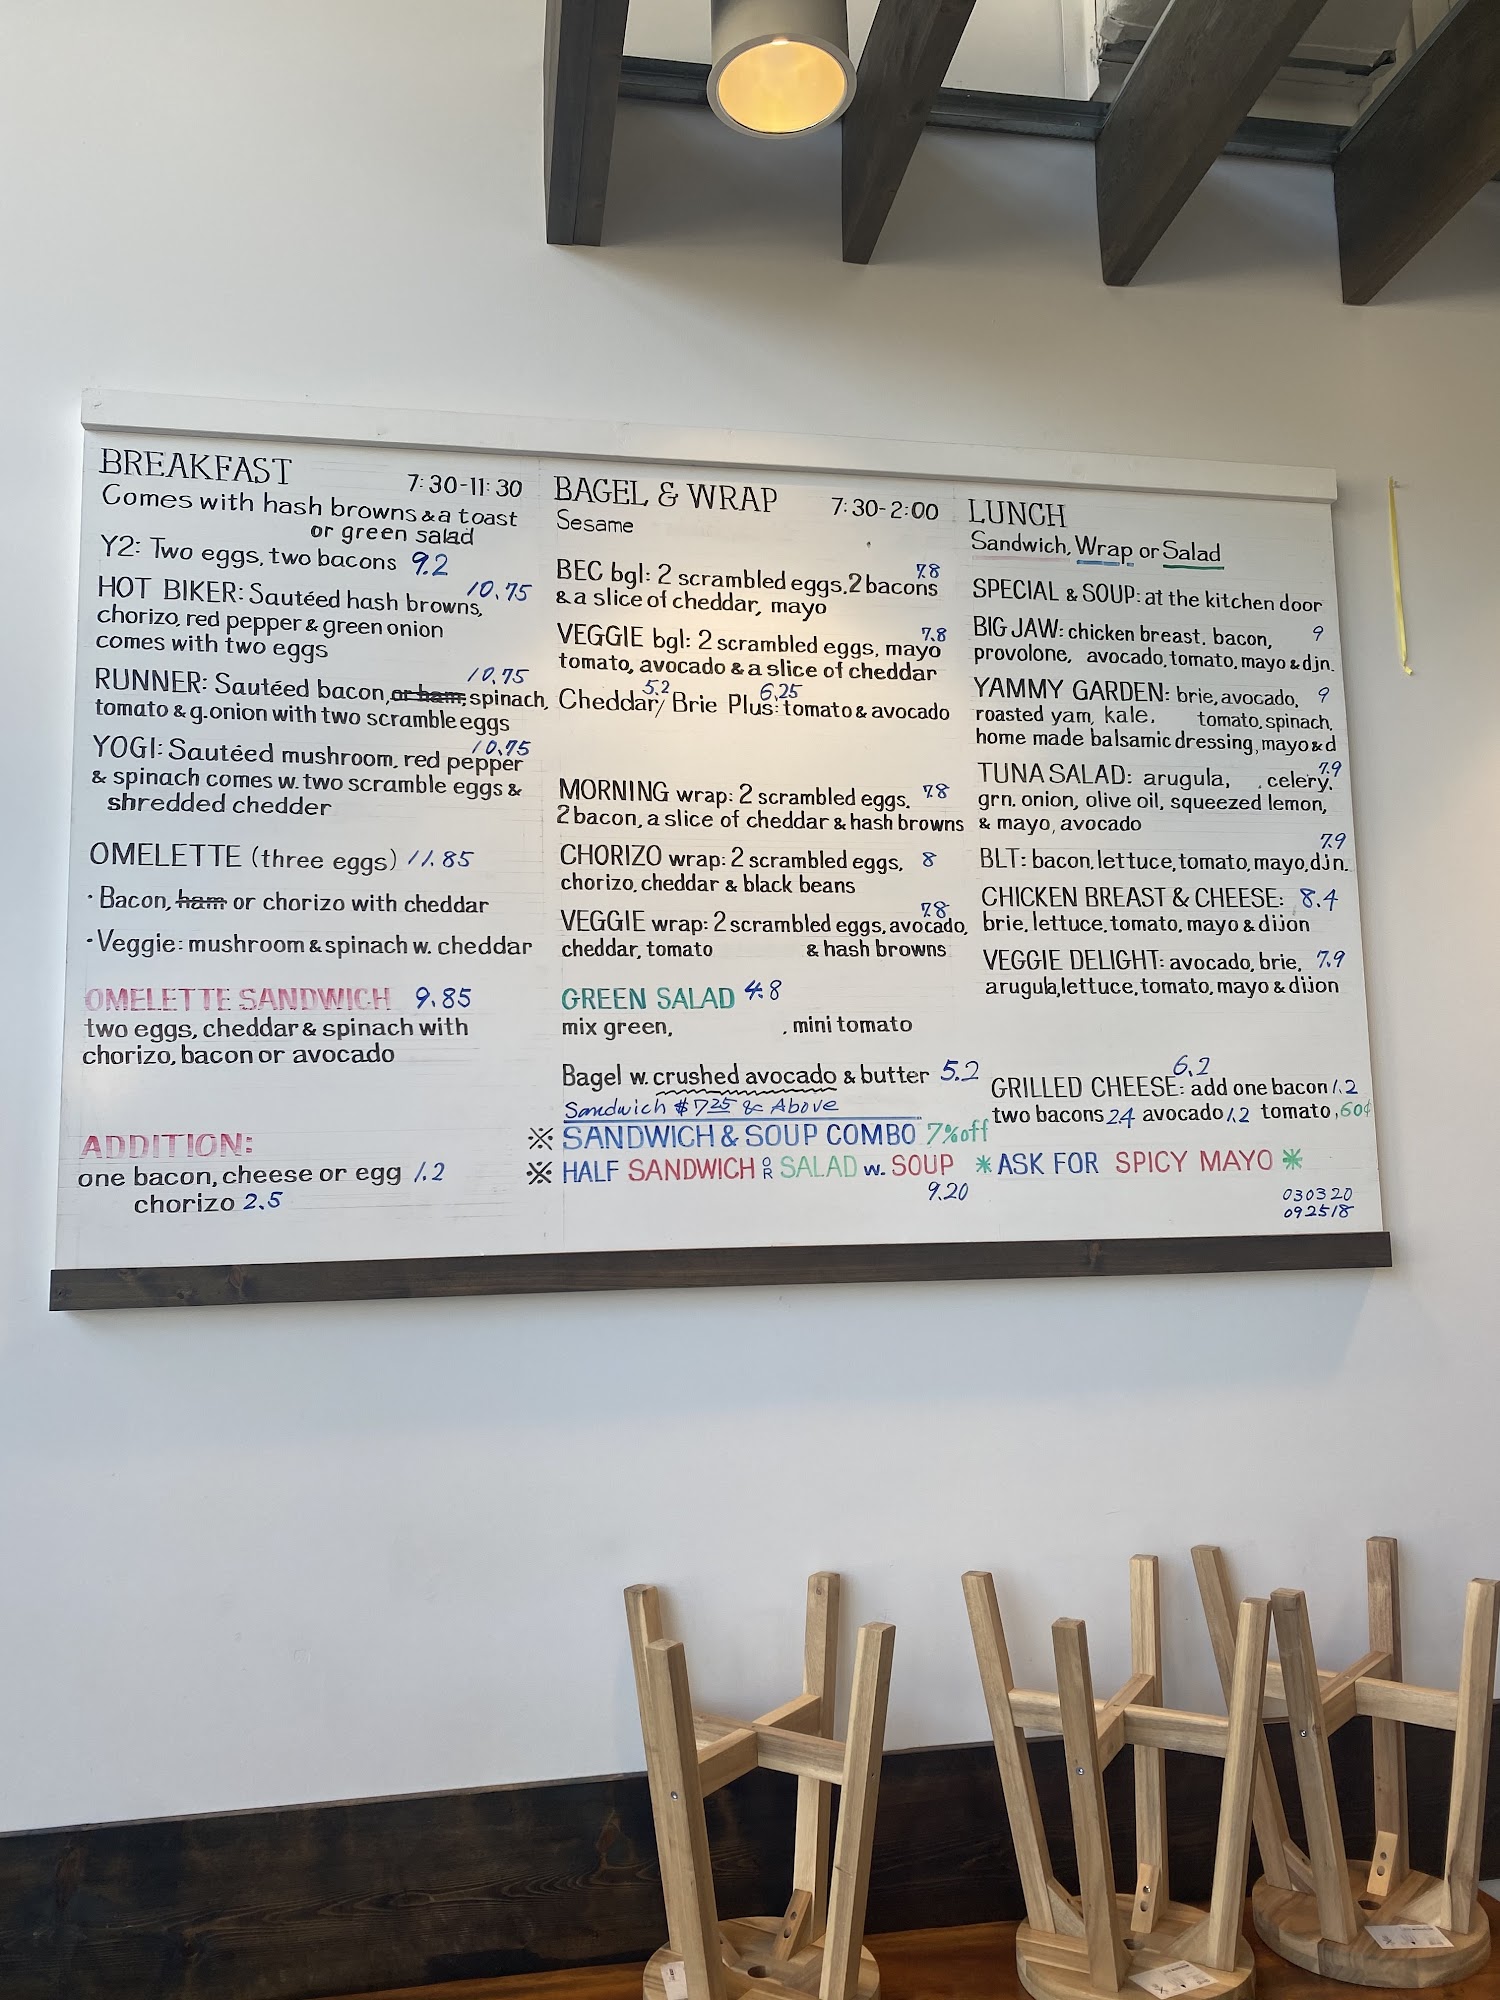 BREAKFAST 7:30-11:30
Comes with hash browns & a toast
or green salad
Y2: Two eggs, two bacons 9.2
HOT BIKER: Sautéed hash browns, 10.75
chorizo, red pepper & green onion
comes with two eggs
RUNNER: Sautéed bacon, or ham, spinach, 10.75
tomato & g.onion with two scramble eggs
YOGI: Sautéed mushroom, red pepper 10.75
& spinach comes w. two scramble eggs &
shredded chedder
OMELETTE (three eggs) 11.85
· Bacon, ham or chorizo with cheddar
· Veggie: mushroom & spinach w. cheddar
OMELETTE SANDWICH 9.85
two eggs, cheddar & spinach with
chorizo, bacon or avocado
ADDITION:
one bacon, cheese or egg 1.2
chorizo 2.5
BAGEL & WRAP 7:30-2:00
Sesame
BEC bgl: 2 scrambled eggs, 2 bacons 7.8
& a slice of cheddar, mayo
VEGGIE bgl: 2 scrambled eggs, mayo 7.8
tomato, avocado & a slice of cheddar
Cheddar 5.2 / Brie Plus: 6.25 tomato & avocado
MORNING wrap: 2 scrambled eggs, 7.8
2 bacon, a slice of cheddar & hash browns
CHORIZO wrap: 2 scrambled eggs, 8
chorizo, cheddar & black beans
VEGGIE wrap: 2 scrambled eggs, avocado, 7.8
cheddar, tomato & hash browns
GREEN SALAD 4.8
mix green, , mini tomato
Bagel w. crushed avocado & butter 5.2
Sandwich $7.25 & Above
※ SANDWICH & SOUP COMBO 7% off
※ HALF SANDWICH OR SALAD w. SOUP
9.20
LUNCH
Sandwich, Wrap or Salad
SPECIAL & SOUP: at the kitchen door
BIG JAW: chicken breast, bacon, 9
provolone, avocado, tomato, mayo & djn.
YAMMY GARDEN: brie, avocado, 9
roasted yam, kale, tomato, spinach,
home made balsamic dressing, mayo & d
TUNA SALAD: arugula, , celery, 7.9
grn. onion, olive oil, squeezed lemon,
& mayo, avocado
7.9
BLT: bacon, lettuce, tomato, mayo, djn.
CHICKEN BREAST & CHEESE: 8.4
brie, lettuce, tomato, mayo & dijon
VEGGIE DELIGHT: avocado, brie, 7.9
arugula, lettuce, tomato, mayo & dijon
6.2
GRILLED CHEESE: add one bacon 1.2
two bacons 2.4 avocado 1.2 tomato, 60¢
* ASK FOR SPICY MAYO *
030320
092518